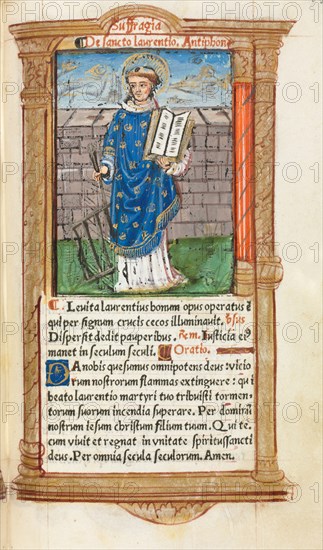 Suffragia
De sancto laurentio. Antiphona
C. Leuita laurentius bonum opus operatus ē
qui per signum crucis cecos illuminauit. Vsus
Dispersit dedit pauperibus. Rem. Iusticia eiꝰ
manet in seculum seculi. Oratio.
DA nobis quesumus omnipotens deus: vicio
rum nostrorum flammas extinguere: qui
beato laurentio martyri tuo tribuisti tormen-
torum suorum incendia superare. Per dominū
nostrum iesum christum filium tuum. Qui te-
cum viuit et regnat in vnitate spiritussancti
deus. Per omnia secula seculorum. Amen.